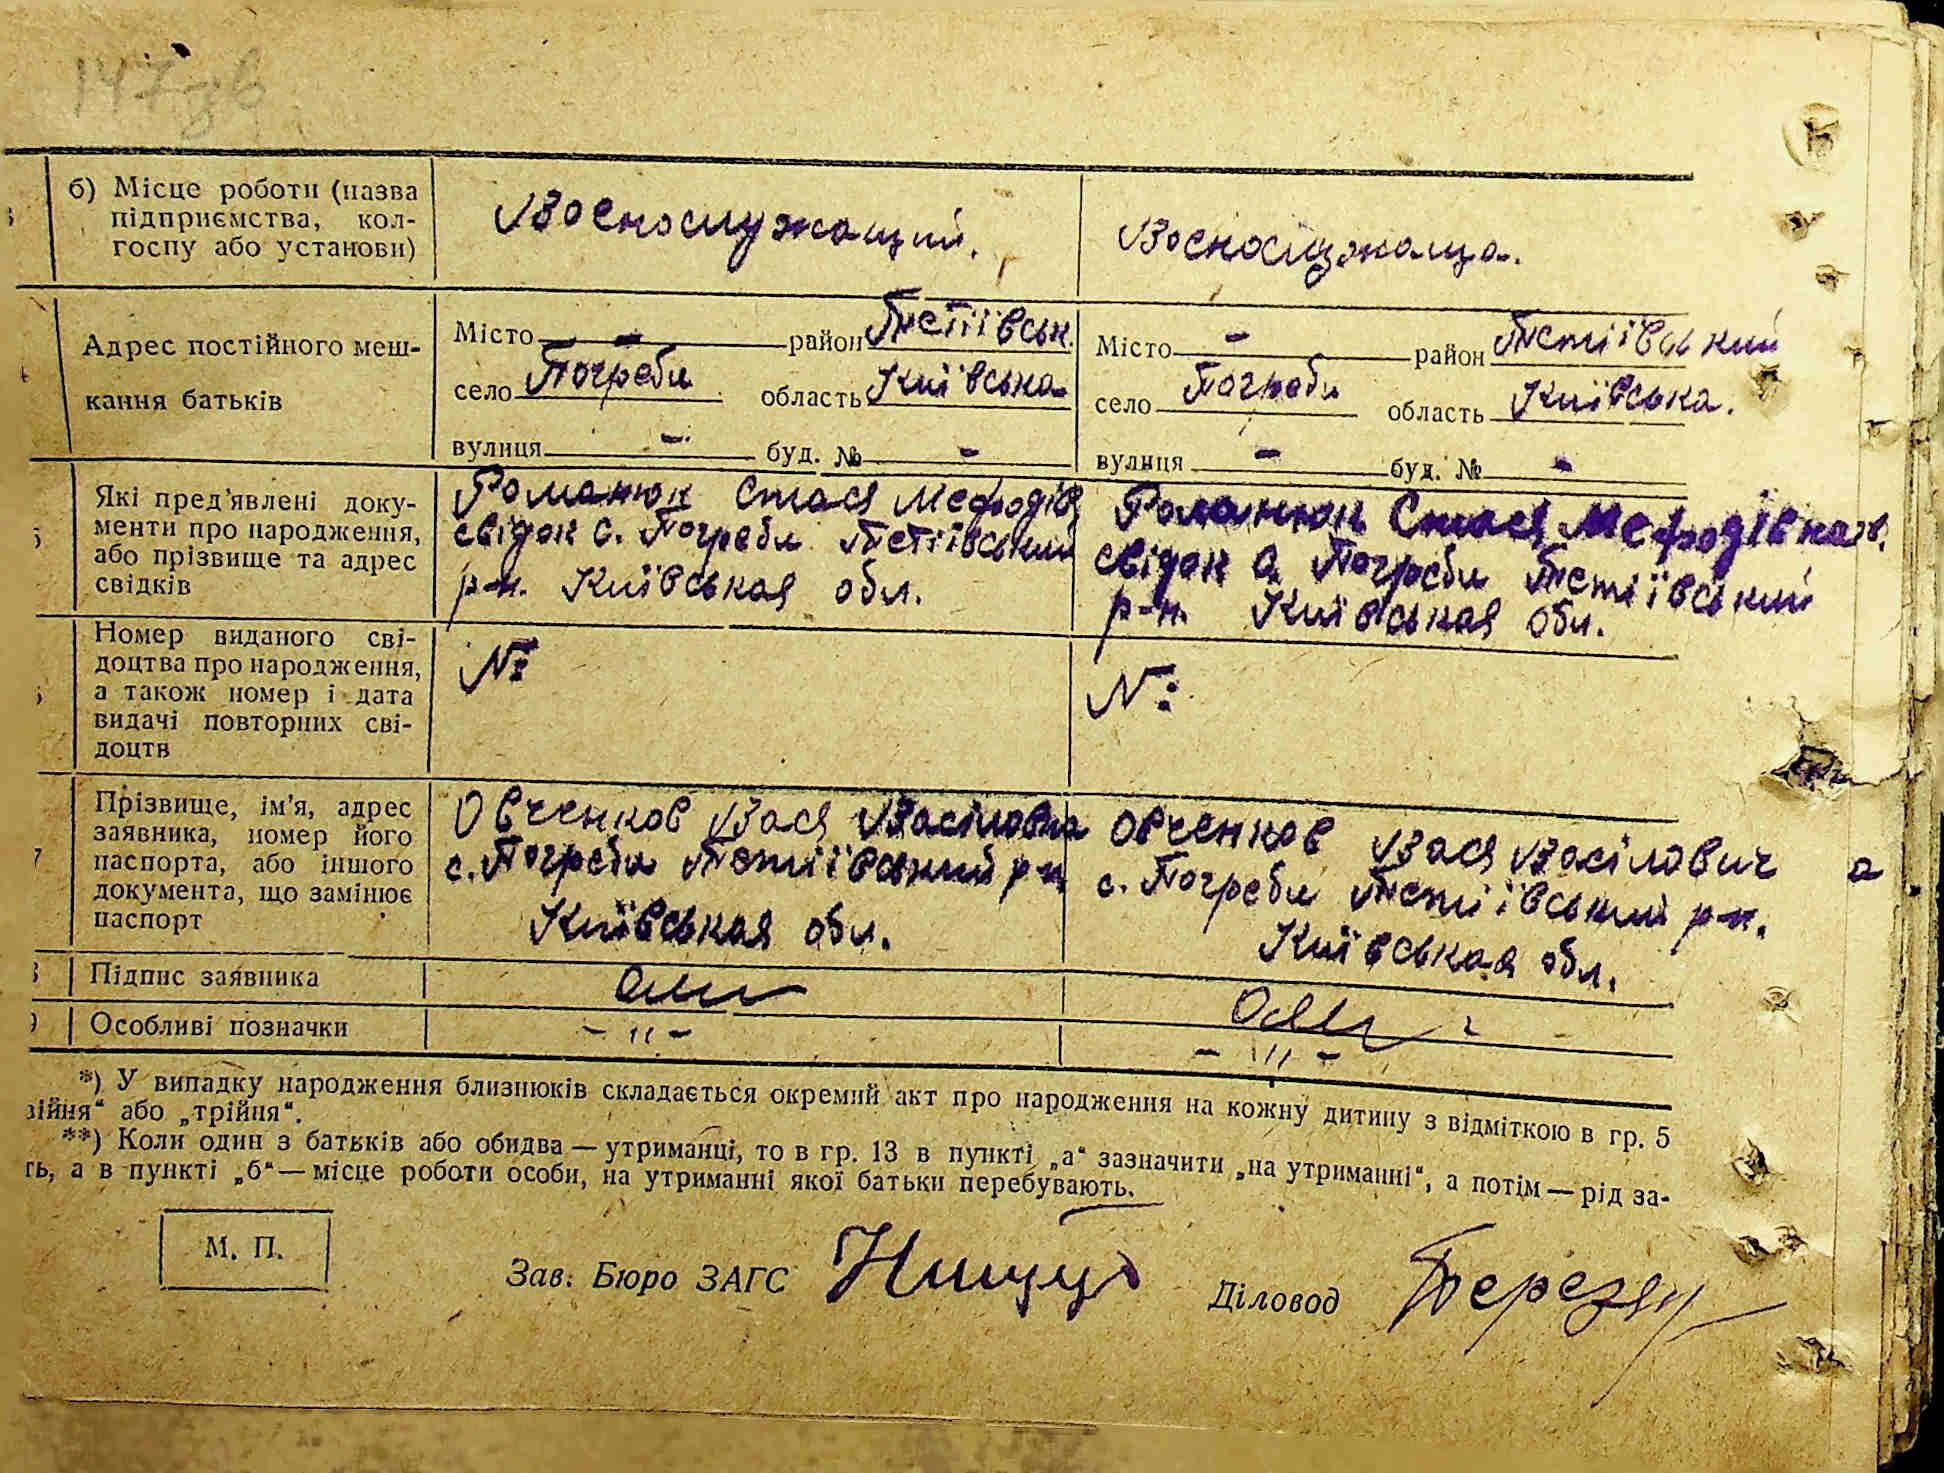 147зв
б) Місце роботи (назва
підприємства, кол-
госпу або установи)
Воєнослужащий.
Воєнослужаща.
Адрес постійного меш-
кання батьків
Місто — район Тетіївськ.
село Погреби область Київська
вулиця — буд. № —
Місто — район Тетіївський
село Погреби область Київська.
вулиця — буд. № —
5 Які пред'явлені доку-
менти про народження,
або прізвище та адрес
свідків
Романюк Стася Мефодів
свідок с. Погреби Тетіївський
р-н. Київськая обл.
Романюк Стася Мефодівна
свідок с. Погреби Тетіївський
р-н. Київськая обл.
Номер виданого сві-
доцтва про народження,
а також номер і дата
видачі повторних сві-
доцтв
№
№
7 Прізвище, ім'я, адрес
заявника, номер його
паспорта, або іншого
документа, що замінює
паспорт
Овченков Вася Васіловна
с. Погреби Тетіївський р-н
Київськая обл.
Овченков Вася Васілович а
с. Погреби Тетіївський р-н.
Київськая обл.
Підпис заявника
Особливі позначки
— 〃 —
— 〃 —
*) У випадку народження близнюків складається окремий акт про народження на кожну дитину з відміткою в гр. 5
війня“ або „трійня“.
**) Коли один з батьків або обидва — утриманці, то в гр. 13 в пункті „а“ зазначити „на утриманні“, а потім — рід за-
ть, а в пункті „б“ — місце роботи особи, на утриманні якої батьки перебувають.
М. П.
Зав. Бюро ЗАГС
Діловод